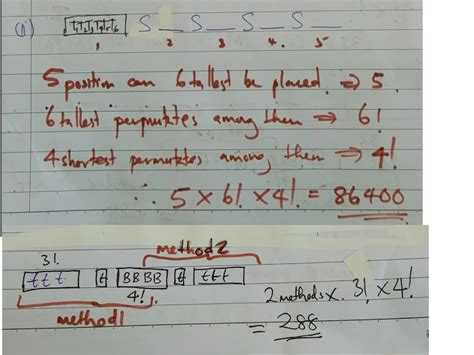 (1) t₁t₂t₃t₄t₅t₆ S _ S _ S _ S _
1 2 3 4. 5
5 position can 6 tallest be placed. ⇒ 5.
6 tallest permutates among them ⇒ 6!
4 shortest permutates among them ⇒ 4!
∴ 5 × 6! × 4! = 86400
method 2
3!
t t t t BBBB t t t t
4!
method 1
2 methods × 3! × 4!
= 288